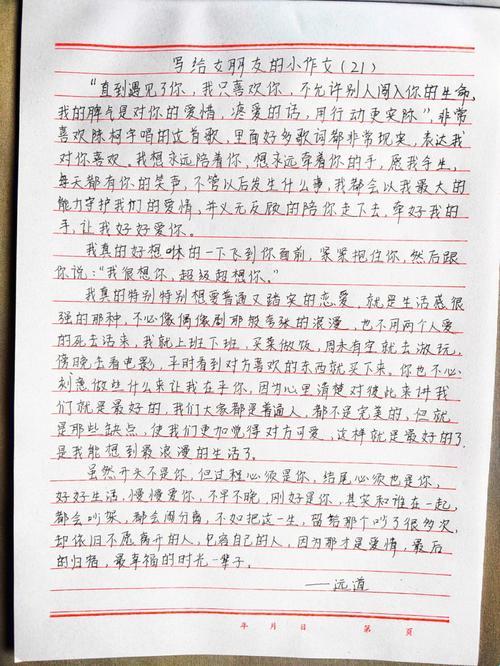 写给女朋友的小作文(21)
“直到遇见了你,我只喜欢你,不允许别人闯入你的生命,
我的脾气是对你的爱情,疼爱的话,用行动更实际”,非常
喜欢陈柯宇唱的这首歌,里面好多歌词都非常现实,表达我
对你喜欢,我想永远陪着你,想永远牵着你的手,愿我余生,
每天都有你的笑声,不管以后发生什么事,我都会以我最大的
能力守护我们的爱情,并义无反顾的陪你走下去,牵好我的
手,让我好好爱你。
我真的好想咻的一下飞到你面前,紧紧抱住你,然后跟
你说:“我很想你,超级超想你。”
我真的特别特别想要普通又踏实的恋爱,就是生活感很
强的那种,不必像偶像剧那般夸张的浪漫,也不用两个人爱
的死去活来,我就上班下班,买菜做饭,周末有空就去游玩,
傍晚去看电影,平时看到对方喜欢的东西就买下来,你也不必
刻意做些什么来让我在乎你,因为心里清楚对彼此来讲我
们就是最好的,我们大家都是普通人,都不是完美的,但就
是那些缺点,使我们更加觉得对方可爱,这样就是最好的了,
是我能想到最浪漫的生活了。
虽然开头不是你,但过程必须是你,结尾必须也是你,
好好生活,慢慢爱你,不早不晚,刚好是你,其实和谁在一起,
都会吵架,都会闹分离,不如把这一生,留给那个吵了很多次,
却依旧不愿离开的人,包容自己的人,因为那才是爱情,最后
的归宿,最幸福的时光一辈子。
——远道
年 月 日 第 页